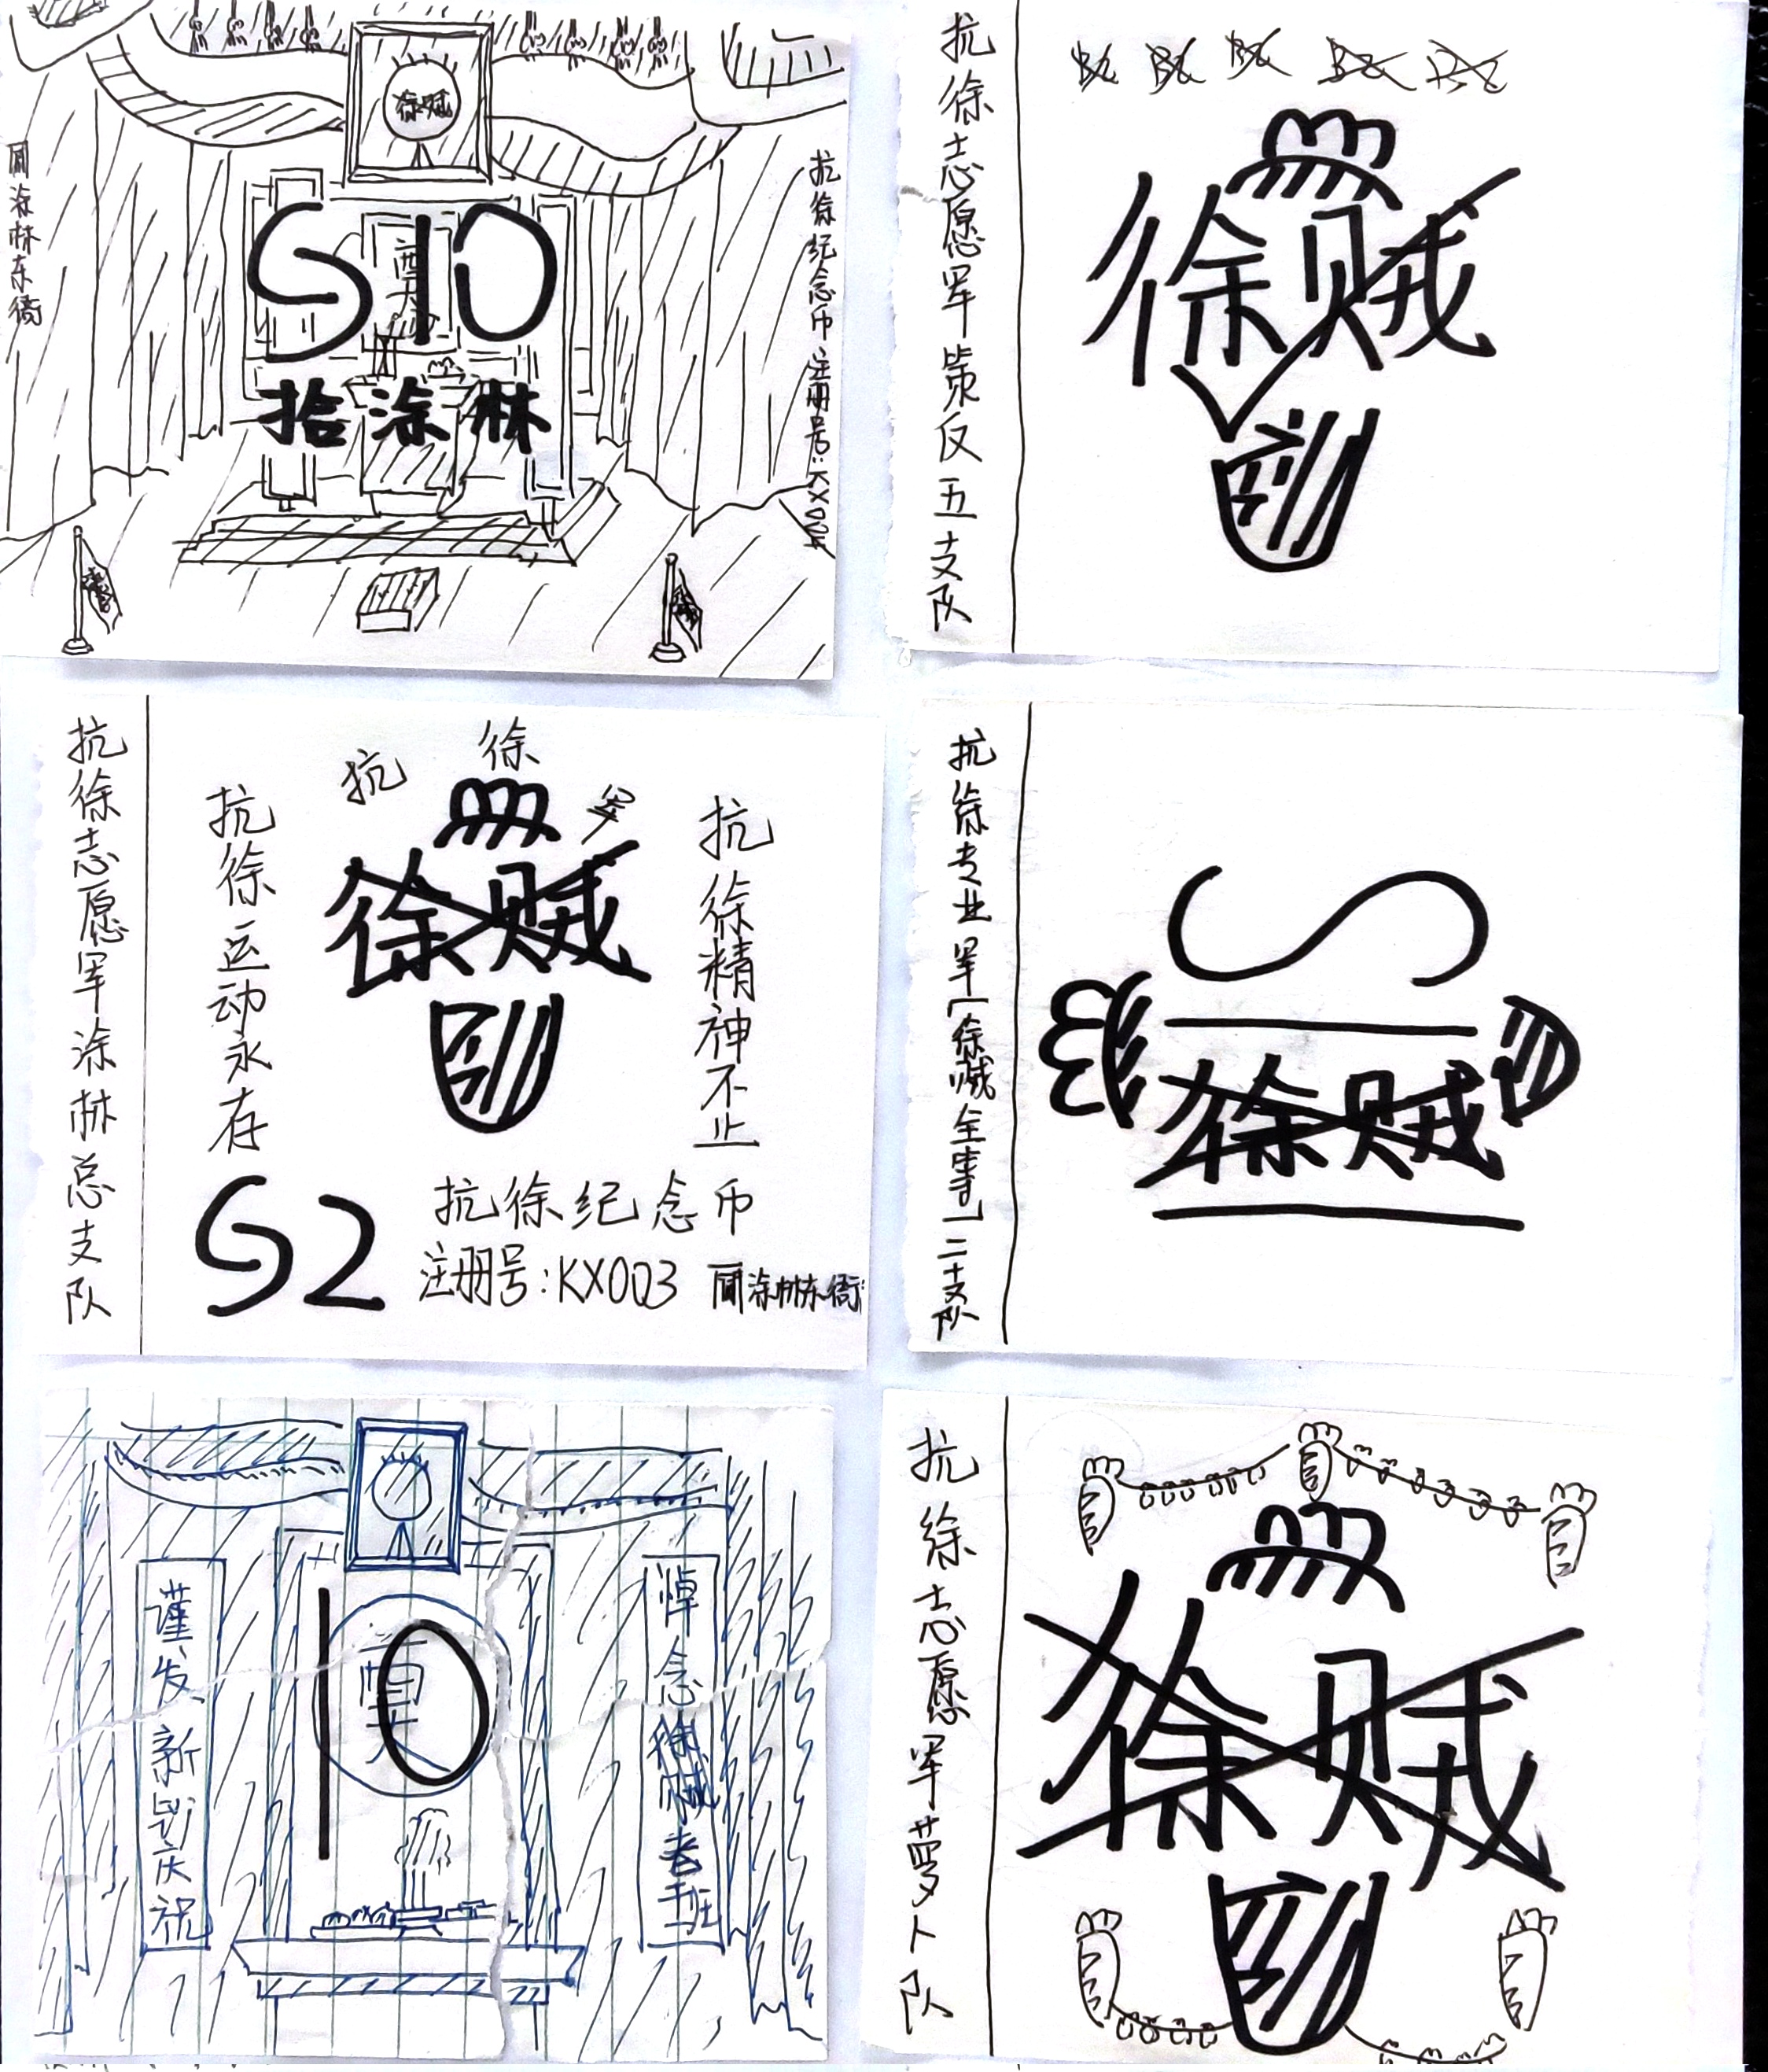 徐贼
抗徐纪念币
注册号:KX004
涂林东
S10
拾涂林
抗徐志愿军策反五支队
徐贼
抗徐志愿军涂林总支队
抗徐军
抗徐运动永存
徐贼
抗徐精神不止
S2
抗徐纪念币
注册号:KX003
涂林东
抗徐专业军[徐贼全责]二支队
S
徐贼
谨发新
庆祝
10
悼念徐贼老班
抗徐志愿军萝卜队
徐贼